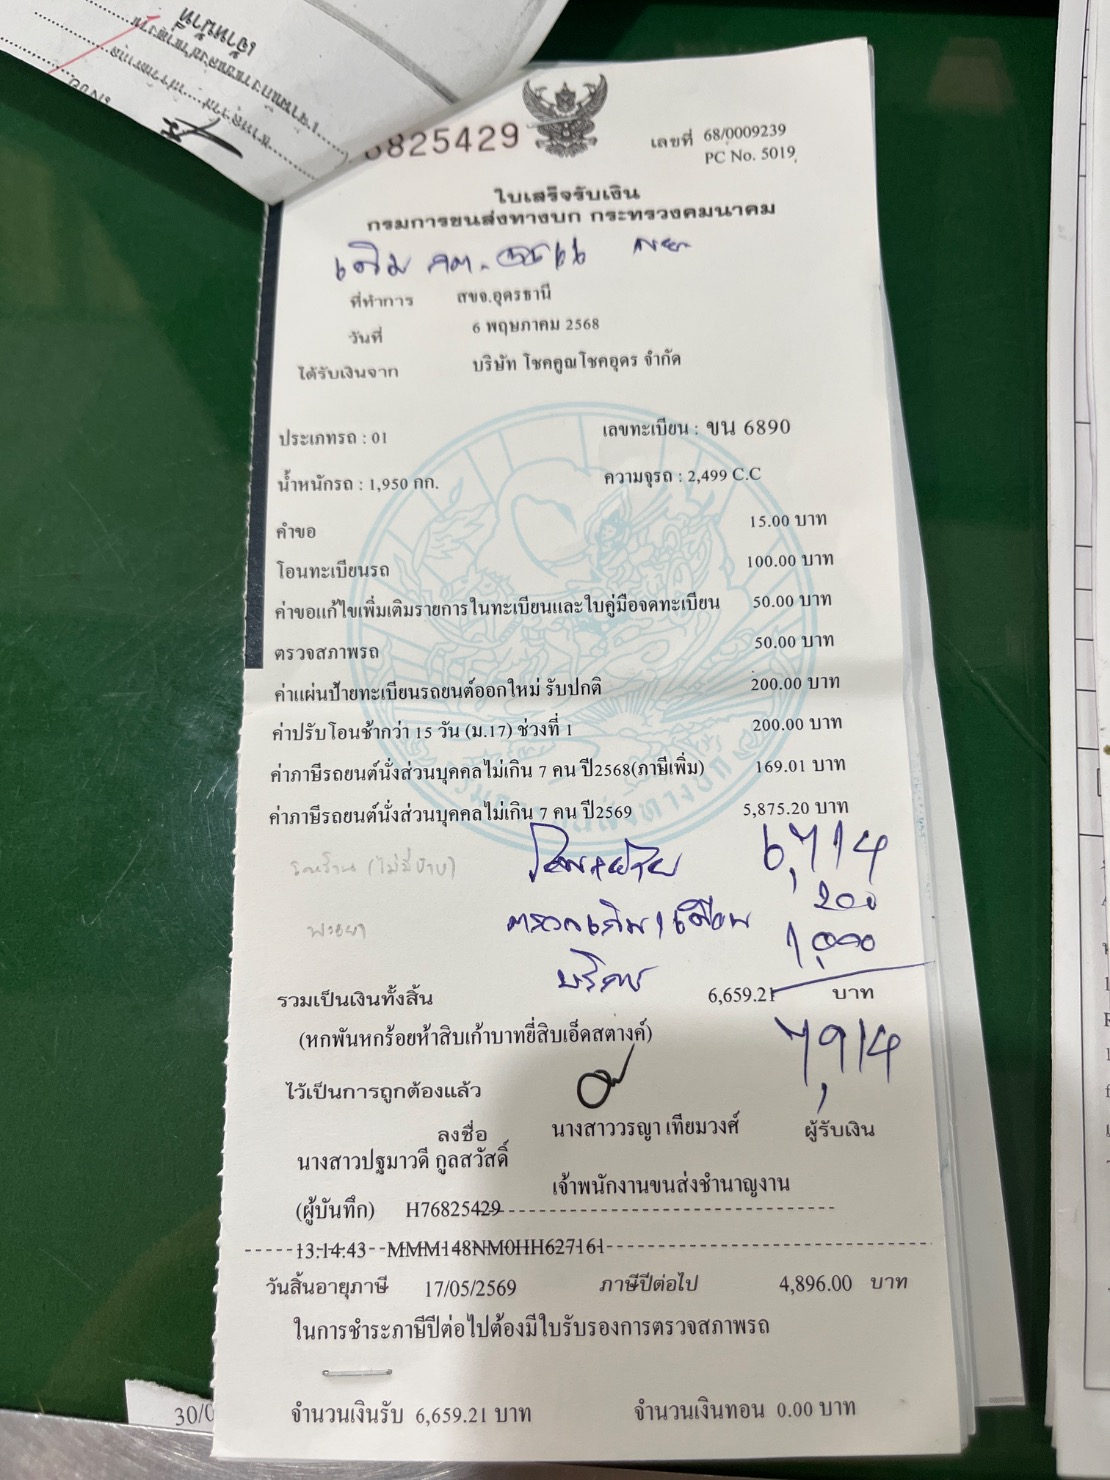 เจ้าหน้าที่
825429
เลขที่ 68/0009239
PC No. 5019
ใบเสร็จรับเงิน
กรมการขนส่งทางบก กระทรวงคมนาคม
เดิม
ที่ทำการ สขจ.อุดรธานี
วันที่ 6 พฤษภาคม 2568
ได้รับเงินจาก บริษัท โชคคูณโชคอุดร จำกัด
ประเภทรถ : 01 เลขทะเบียน : ขน 6890
น้ำหนักรถ : 1,950 กก. ความจุรถ : 2,499 C.C
คำขอ 15.00 บาท
โอนทะเบียนรถ 100.00 บาท
ค่าขอแก้ไขเพิ่มเติมรายการในทะเบียนและใบคู่มือจดทะเบียน 50.00 บาท
ตรวจสภาพรถ 50.00 บาท
ค่าแผ่นป้ายทะเบียนรถยนต์ออกใหม่ รับปกติ 200.00 บาท
ค่าปรับโอนช้ากว่า 15 วัน (ม.17) ช่วงที่ 1 200.00 บาท
ค่าภาษีรถยนต์นั่งส่วนบุคคลไม่เกิน 7 คน ปี2568(ภาษีเพิ่ม) 169.01 บาท
ค่าภาษีรถยนต์นั่งส่วนบุคคลไม่เกิน 7 คน ปี2569 5,875.20 บาท
6,714
200
1,000
บริการ
รวมเป็นเงินทั้งสิ้น 6,659.21 บาท
(หกพันหกร้อยห้าสิบเก้าบาทยี่สิบเอ็ดสตางค์) 7,914
ไว้เป็นการถูกต้องแล้ว
ลงชื่อ นางสาววรญา เทียมวงศ์ ผู้รับเงิน
นางสาวปฐมาวดี กูลสวัสดิ์
เจ้าพนักงานขนส่งชำนาญงาน
(ผู้บันทึก) H76825429
13:14:43 MMM148NM0HH627161
วันสิ้นอายุภาษี 17/05/2569 ภาษีปีต่อไป 4,896.00 บาท
ในการชำระภาษีปีต่อไปต้องมีใบรับรองการตรวจสภาพรถ
จำนวนเงินรับ 6,659.21 บาท จำนวนเงินทอน 0.00 บาท
30/0